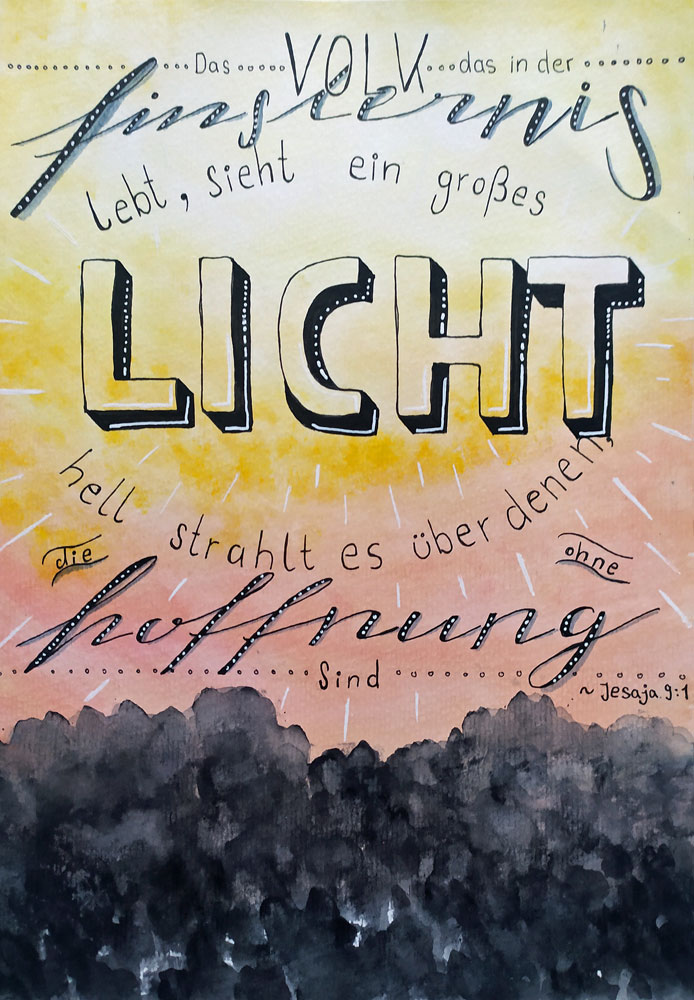 Das VOLK das in der
finsternis
lebt, sieht ein großes
LICHT
hell strahlt es über denen,
die ohne
hoffnung
Sind
~ Jesaja 9:1